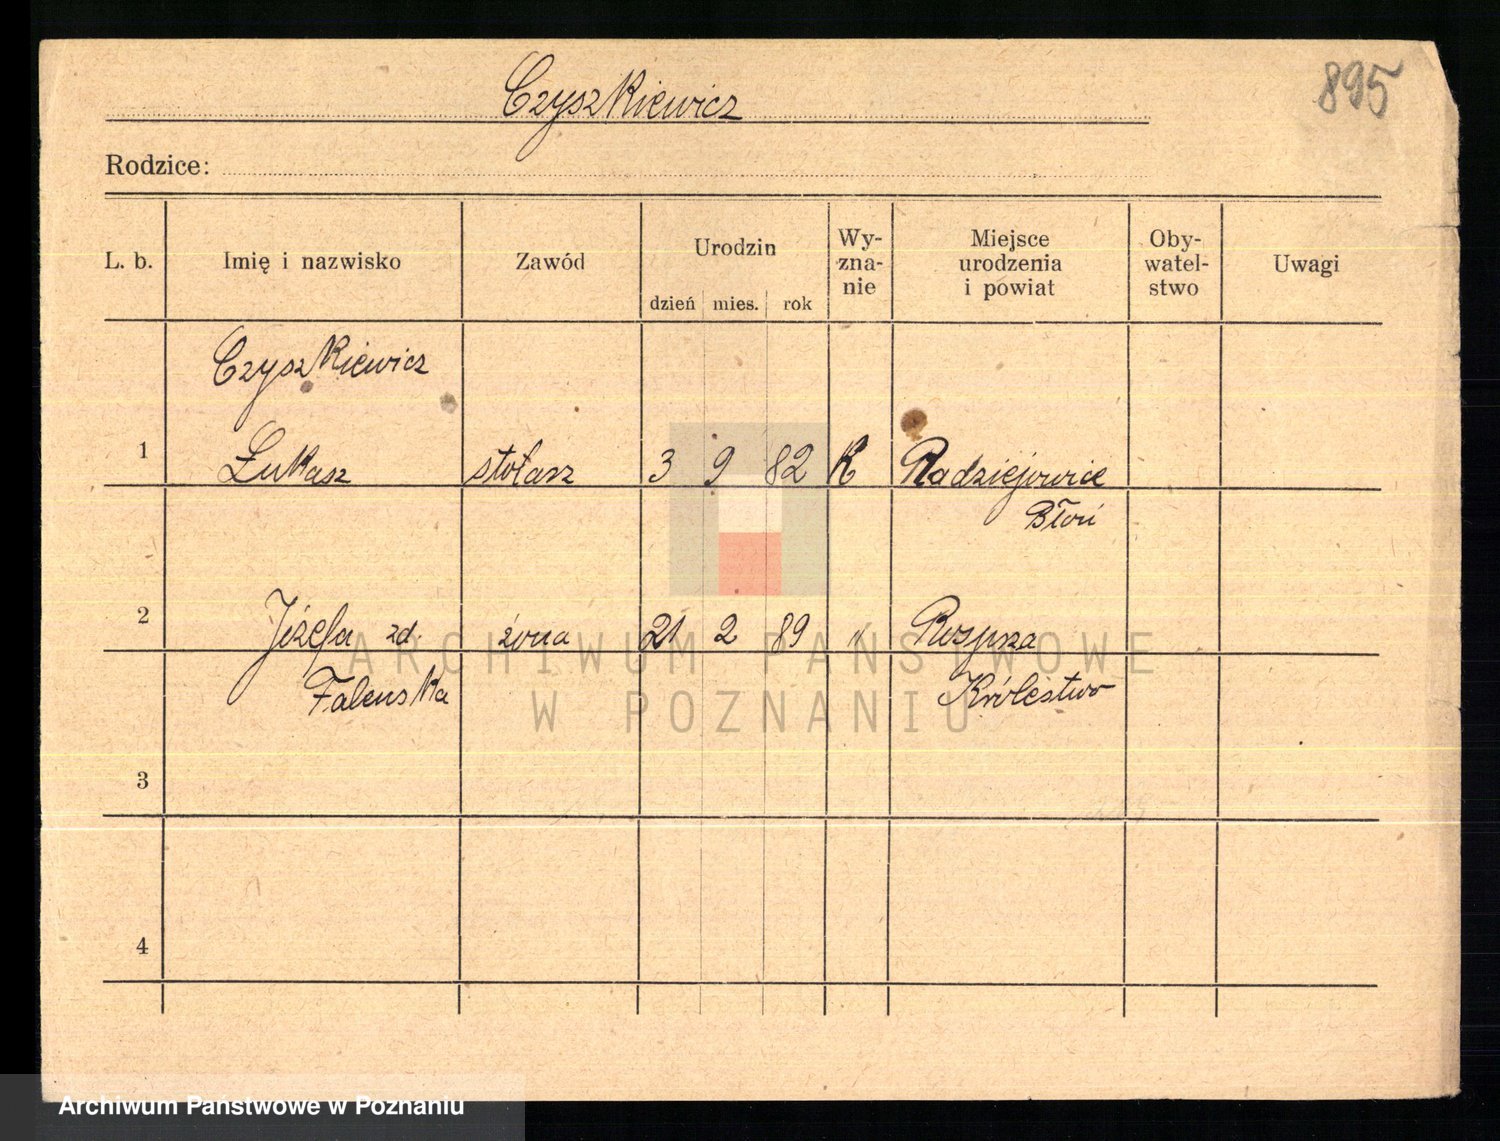 895
Czyszkiewicz
Rodzice:
L. b. Imię i nazwisko Zawód Urodzin dzień mies. rok Wy-zna-nie Miejsce urodzenia i powiat Oby-watel-stwo Uwagi
Czyszkiewicz
1 Łukasz stolarz 3 9 82 K Radziejowice
Błoń
2 Józefa zd. żona 21 2 89 " Rozprza
Falenska Królestwo
3
4
ARCHIWUM PAŃSTWOWE
W POZNANIU
Archiwum Państwowe w Poznaniu